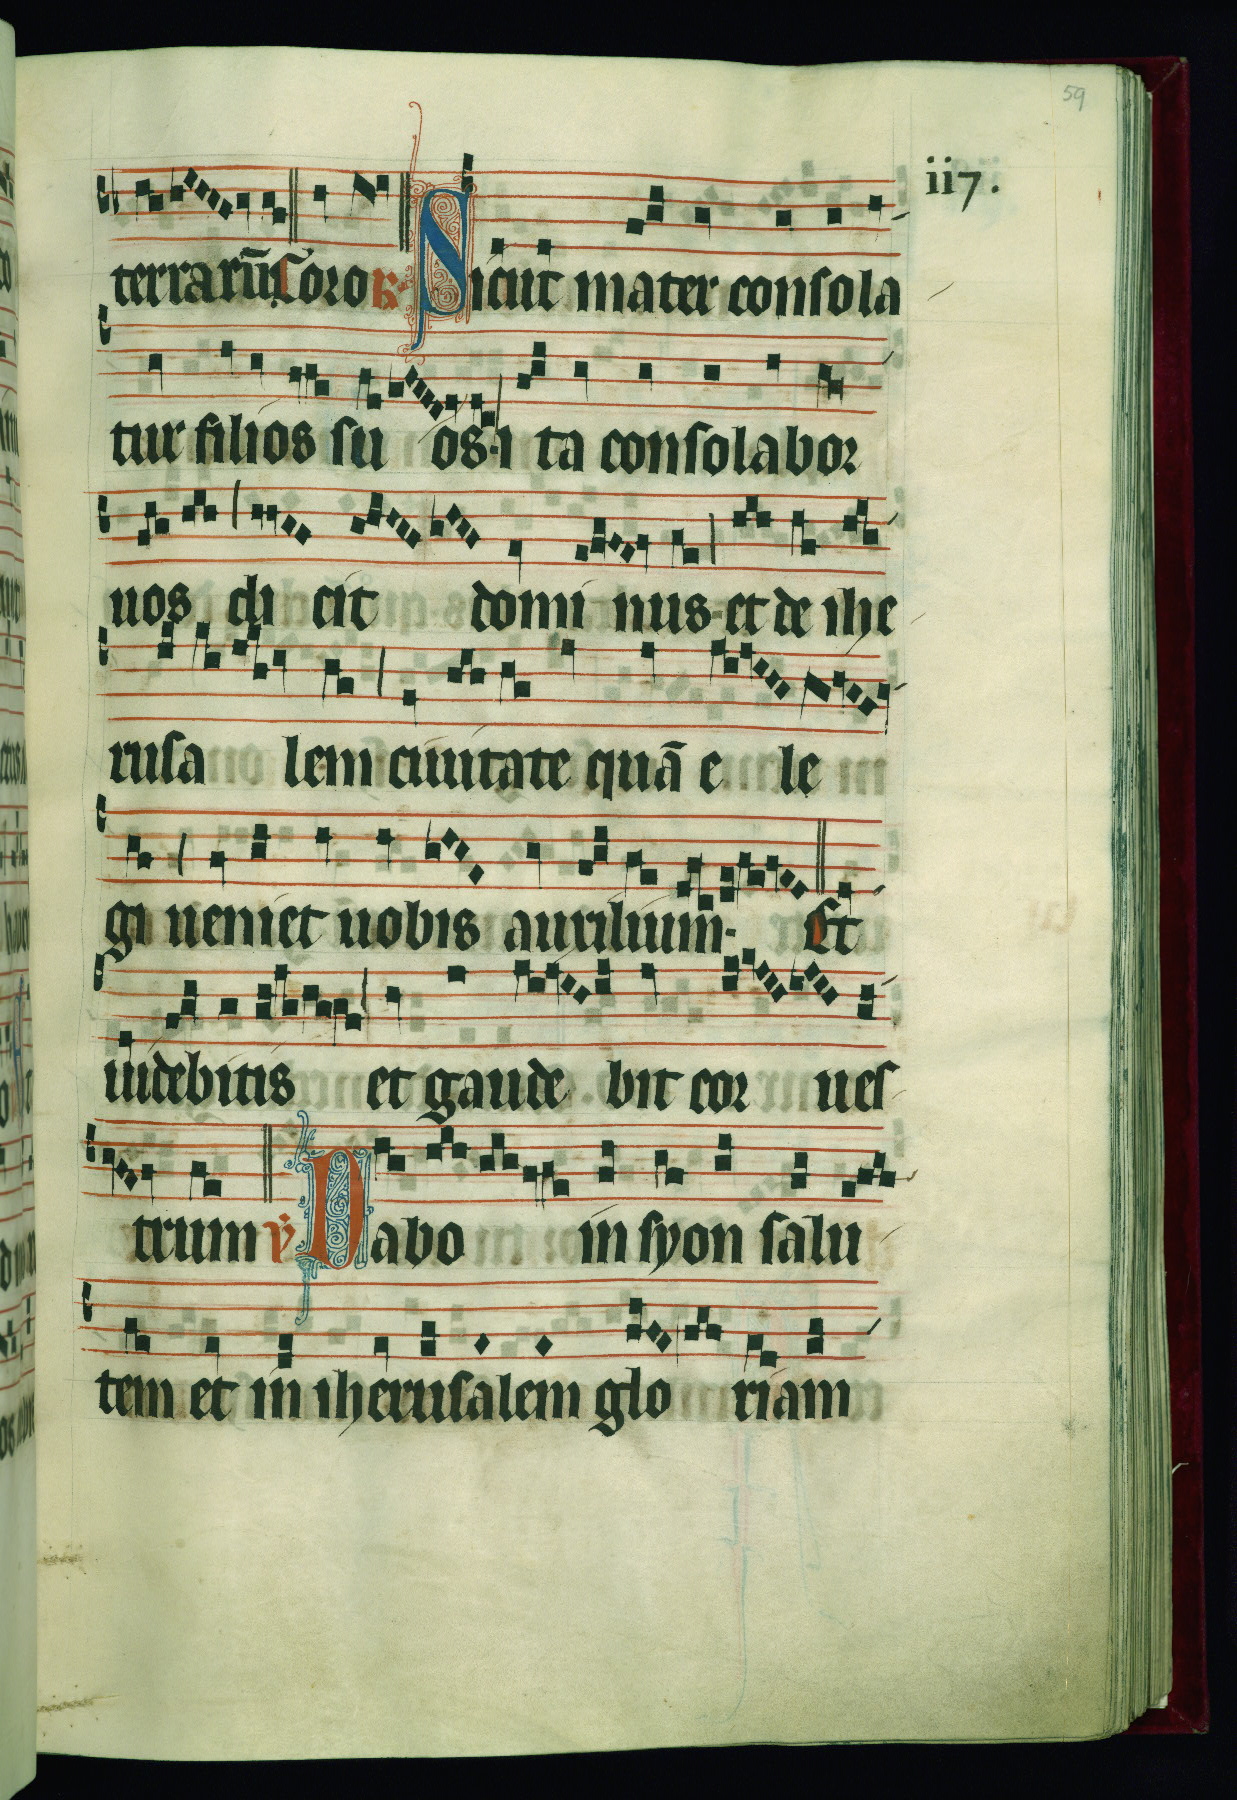 59
ii7.
terrarū Coro ℟ Sicut mater consola
tur filios su os· i ta consolabor
uos di cit domi nus· et de ihe
rusa lem ciuitate quā e le
gi ueniet uobis auxilium· Et
uidebitis et gaude bit cor ues
trum ℣ Dabo in syon salu
tem et in iherusalem glo riam